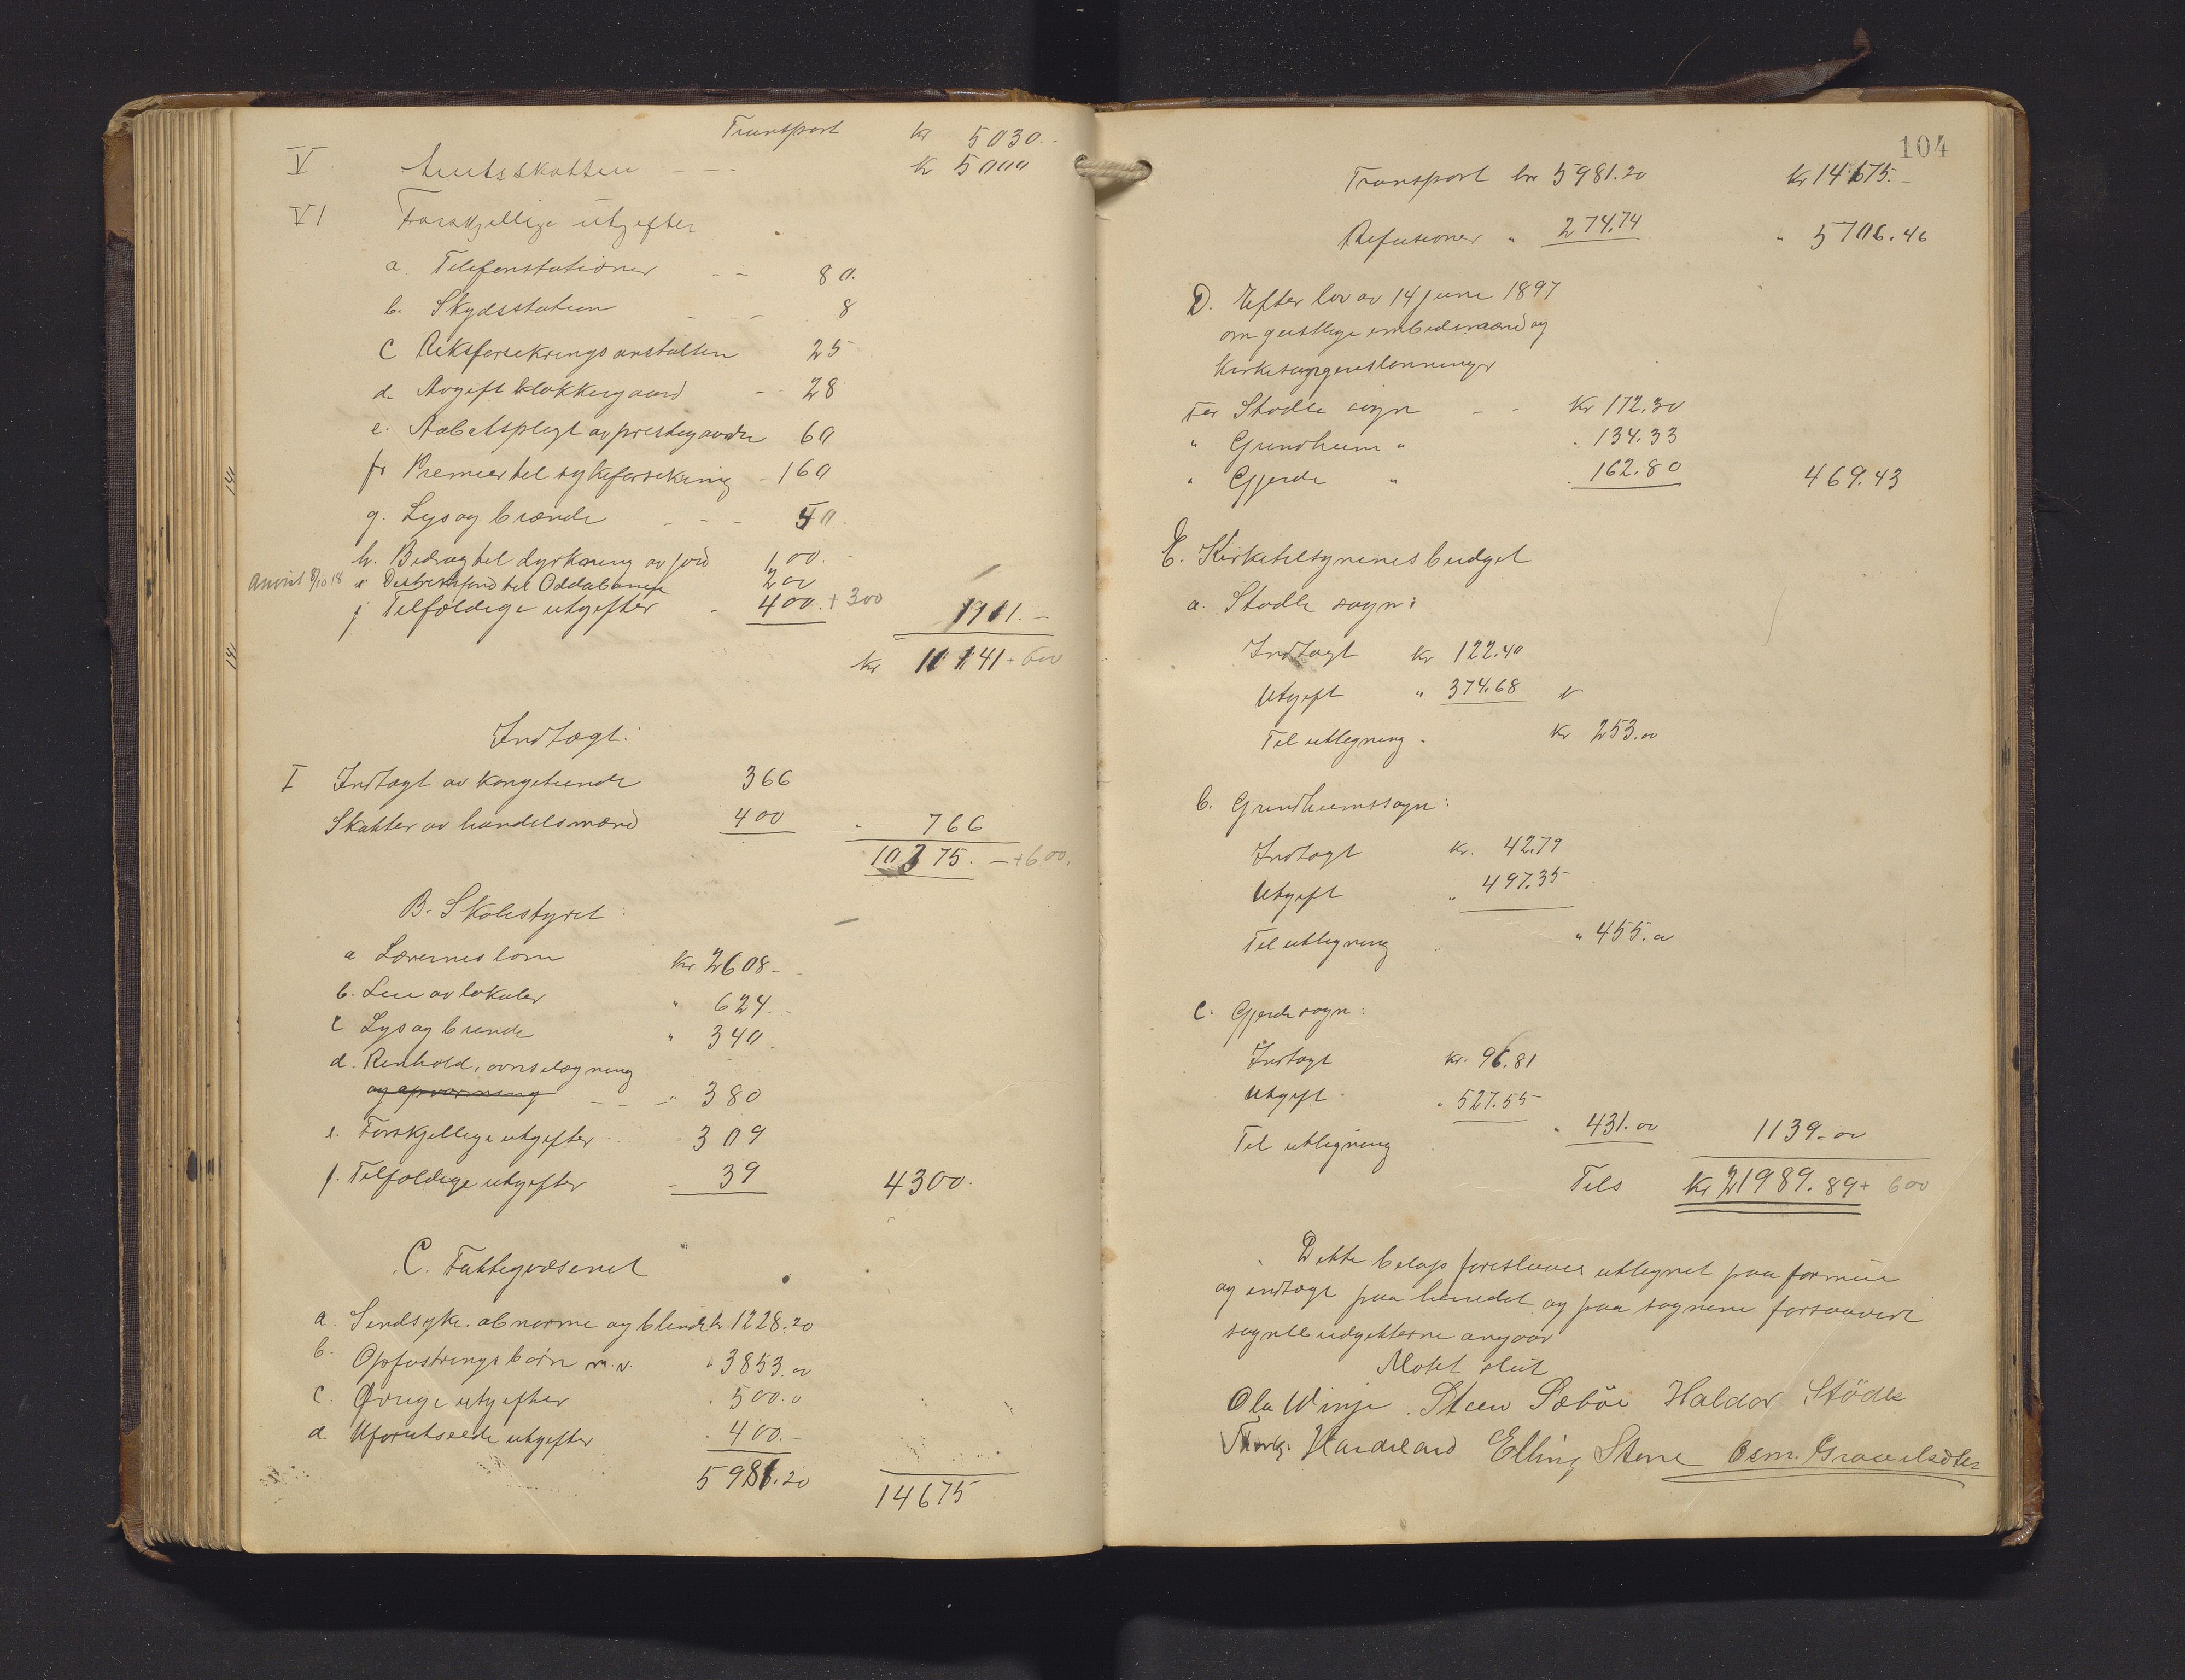 Transport kr 5030.-
V Amtsskatten - - kr 5000
VI Forskjellige utgifter
a Telefonstationer - - 80.
b. Skydsstation - - 8
c Riksforsikringsanstalten 25
d. Avgift klokkergaard - 28
e. Aabotspligt av prestegaarde 60
f. Premier til sykeforsikring - 160
g. Lys og brænde - - - 50.
h. Bidrag til dyrkning av jord 100.-
Anvist 8/10 18 i Distriktsfond til Oddabanen 200
j Tilfældige utgifter - 400.+300 1111.-
kr 11141 + 600
Indtægt:
I Indtægt av kongetiende 366
Skatter av handelsmænd 400 766
10375.- +600.
B. Skolestyret:
a Lærernes løn kr 2608-
b. Leie av lokaler " 624.-
c Lys og brende " 340.
d. Renhold, ovnsilægning
og opvarming - - - " 380
e. Forskjellige utgifter 309
f. Tilfældige utgifter - 39 4300.
C. Fattigvæsenet
a. Sindsyke. abnorme og blinde kr. 1228.20
b. Opfostringsbørn m.v. " 3853.00
c. Øvrige utgifter . 500.0
d. Uforutseede utgifter . 400.-
5981.20 14675
104
Transport kr 5981.20 kr 14675.-
Refusioner " 274.74 " 5706.46
D. Efter lov av 14 juni 1897
om geistlige embedsmænd og
kirkesangerens lønninger
For Stødle sogn - - kr 172.30
" Grindheim " . 134.33
" Gjerde " . 162.80 469.43
E. Kirketilsynenes budget
a. Stødle sogn:
Indtægt kr 122.40
Utgift " 374.68
Til utligning. kr 253.00
b. Grindheimssogn:
Indtægt kr. 42.79
Utgift " 497.35
Til utligning " 455.00
c. Gjerde sogn:
Indtægt kr. 96.81
Utgift . 527.55
Til utligning " 431.00 1139.00
Tils kr 21989.89 + 600
Dette beløp foreslaaes utlignet paa formue
og indtægt paa herredet og paa sognene forsaavidt
sognebudgetterne angaar
Møtet slut
Ola Vinje. Steen Sæbøe Haldor Stødle
Thork. Handeland Elling Stene Osm. Gravelsæter